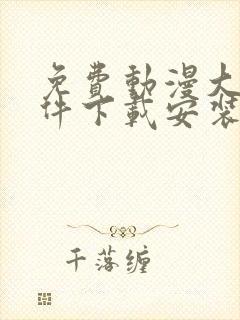 免費動漫大
件下載安裝
千落缠